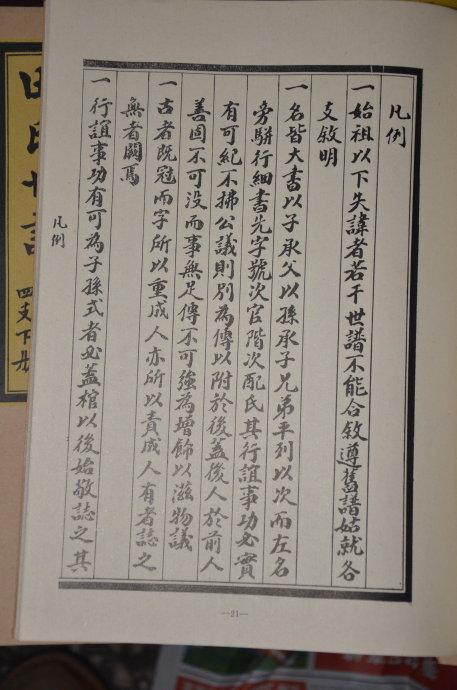 凡例
一始祖以下失諱者若干世譜不能合敘遵舊譜姑就各
支敘明
一名皆大書以子承父以孫承子兄弟平列以次而左名
旁駢行細書先字號次官階次配氏其行誼事功必實
有可紀不拂公議則別為傳以附於後蓋後人於前人
善固不可没而事無足傳不可強為增飾以滋物議
一古者既冠而字所以重成人亦所以責成人有者誌之
無者闕焉
一行誼事功有可為子孫式者必蓋棺以後始敬誌之其
凡例
—21—
四支下册